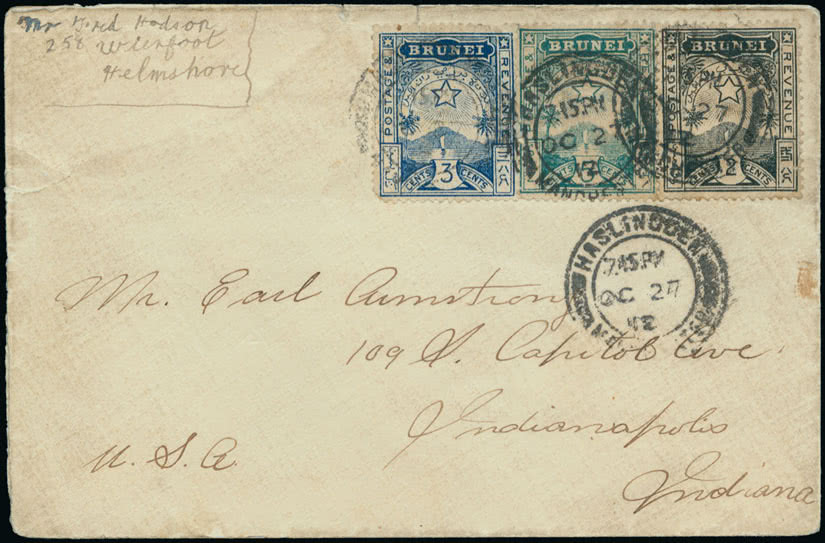 Mr Fred Hodson
258
Helmshore
BRUNEI
POSTAGE &
REVENUE
CENTS 3 CENTS
BRUNEI
REVENUE
CENTS 3 CENTS
BRUNEI
POSTAGE &
REVENUE
CENTS 2 CENTS
HASLINGDEN
7.15 PM
OC 27
HASLINGDEN
7.15 PM
OC 27
12
Mr. Earl Armstrong
109 S. Capitol Ave
Indianapolis
U. S. A.
Indiana